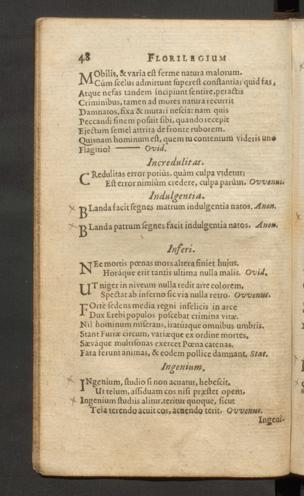 48 FLORILEGIUM
MObilis, & varia est ferme natura malorum.
Cùm scelus admittunt superest constantia; quid fas,
Atque nefas tandem incipiunt sentire, peractis
Criminibus, tamen ad mores natura recurrit
Damnatos, fixa & mutari nescia: nam quis
Peccandi finem posuit sibi, quando recepit
Ejectum semel attrita de fronte ruborem.
Quisnam hominum est, quem tu contentum videris uno
Flagitio? Ovid.
Incredulitas.
CRedulitas error potiùs, quàm culpa videtur;
Est error nimiùm credere, culpa parùm. Ovvenus.
Indulgentia.
BLanda facit segnes matrum indulgentia natos. Anon.
BLanda patrum segnes facit indulgentia natos. Anon.
Inferi.
NEc mortis pœnas mors altera finiet hujus.
Horáque erit tantis ultima nulla malis. Ovid.
UT niger in niveum nulla redit arte colorem,
Spectat ab inferno sic via nulla retro. Ovvenus.
FOrte sedens media regni infelicis in arce
Dux Erebi populos poscebat crimina vitæ.
Nil hominum miserans, iratúsque omnibus umbris.
Stant Furiæ circum, variæque ex ordine mortes,
Sævaque multisonas exercet Pœna catenas.
Fata ferunt animas, & eodem pollice damnant. Stat.
Ingenium.
INgenium, studio si non acuatur, hebescit,
Ut telum, assiduam cos nisi præstet opem.
Ingenium studiis alitur, teritur quoque, sicut
Tela terendo acuit cos, acuendo terit. Ovvenus.
Ingeni-